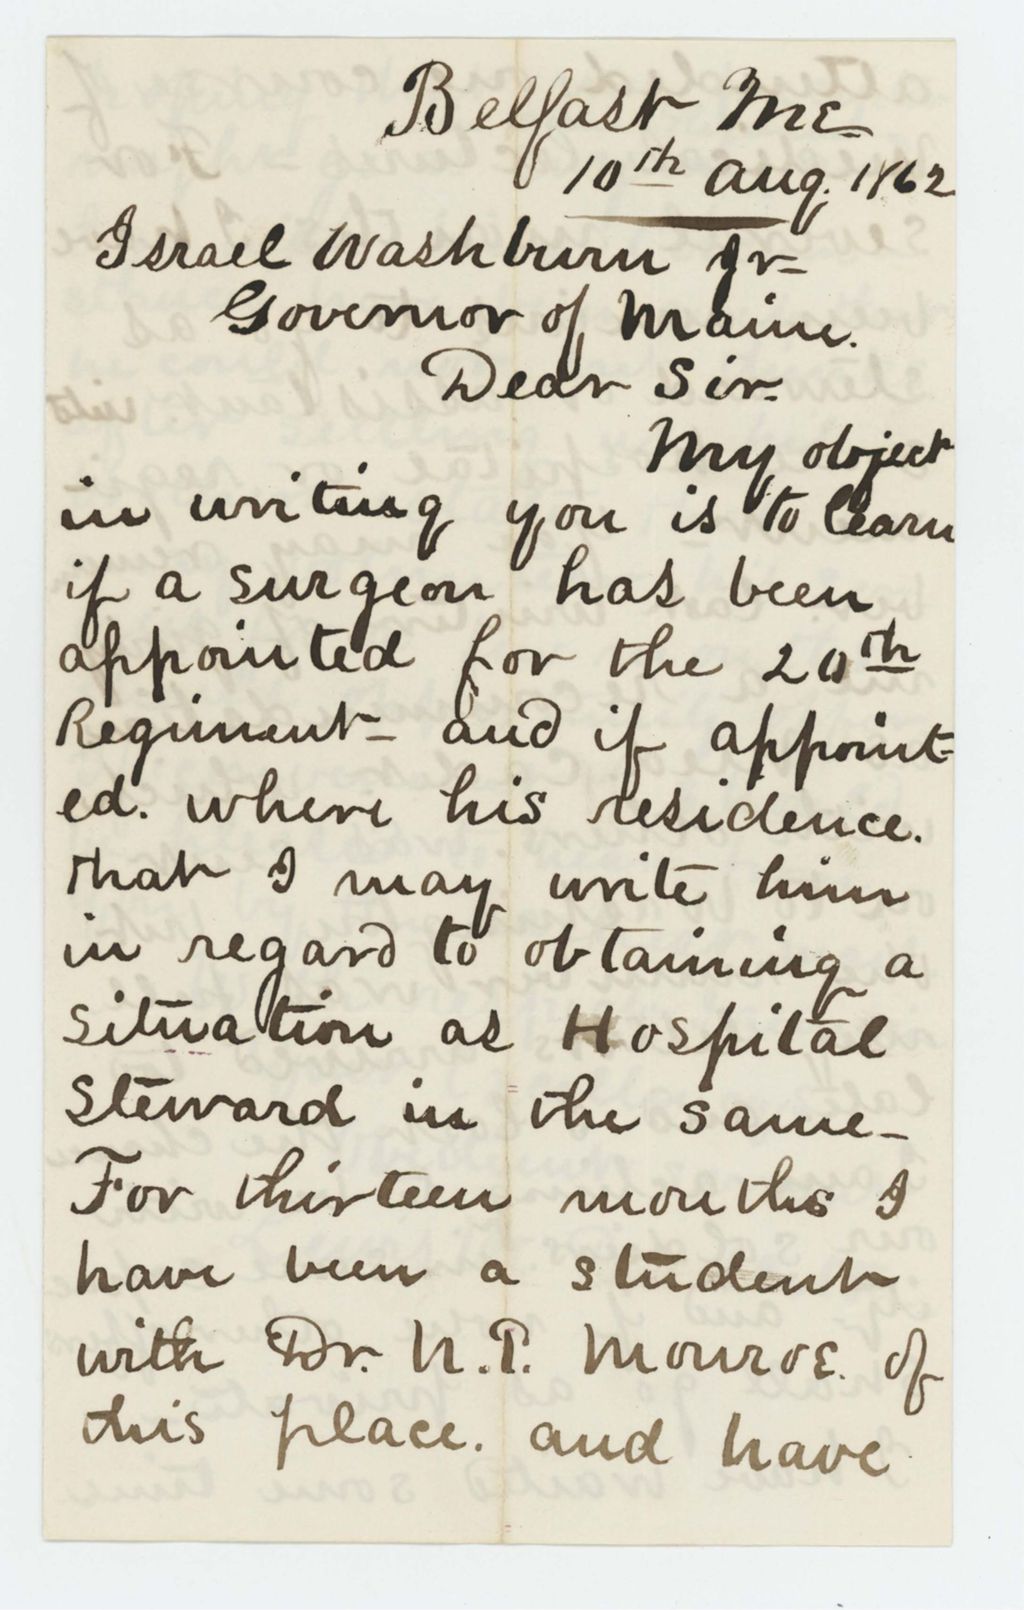 Belfast Me-
10th Aug. 1862
Israel Washburn Jr-
Governor of Maine.
Dear Sir-
My object
in writing you is to learn
if a surgeon has been
appointed for the 20th
Regiment- and if appoint-
ed. where his residence.
that I may write him
in regard to obtaining a
situation as Hospital
Steward in the same-
For thirteen months I
have been a student
with Dr. N.P. Monroe. of
this place. and have